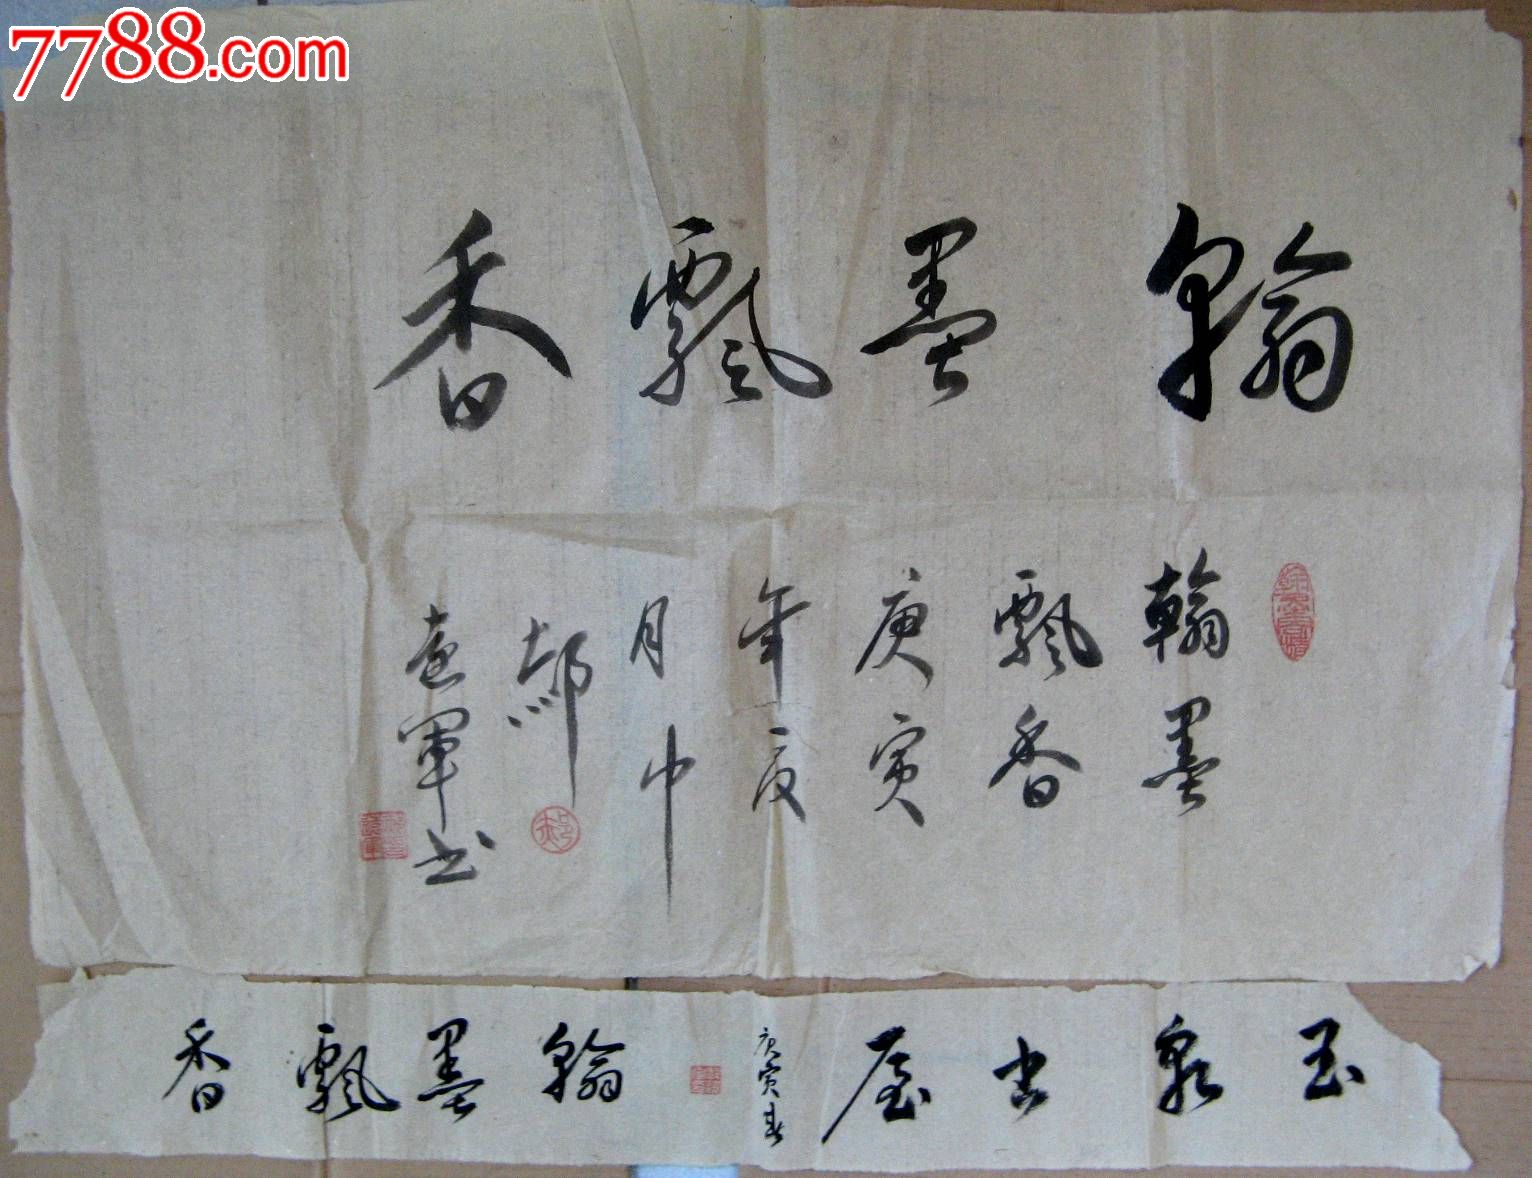 7788.com
翰墨飘香
翰墨
飘香
庚寅
年夏
月中
郝
意軍书
玉泉书屋
庚寅春
翰墨飘香